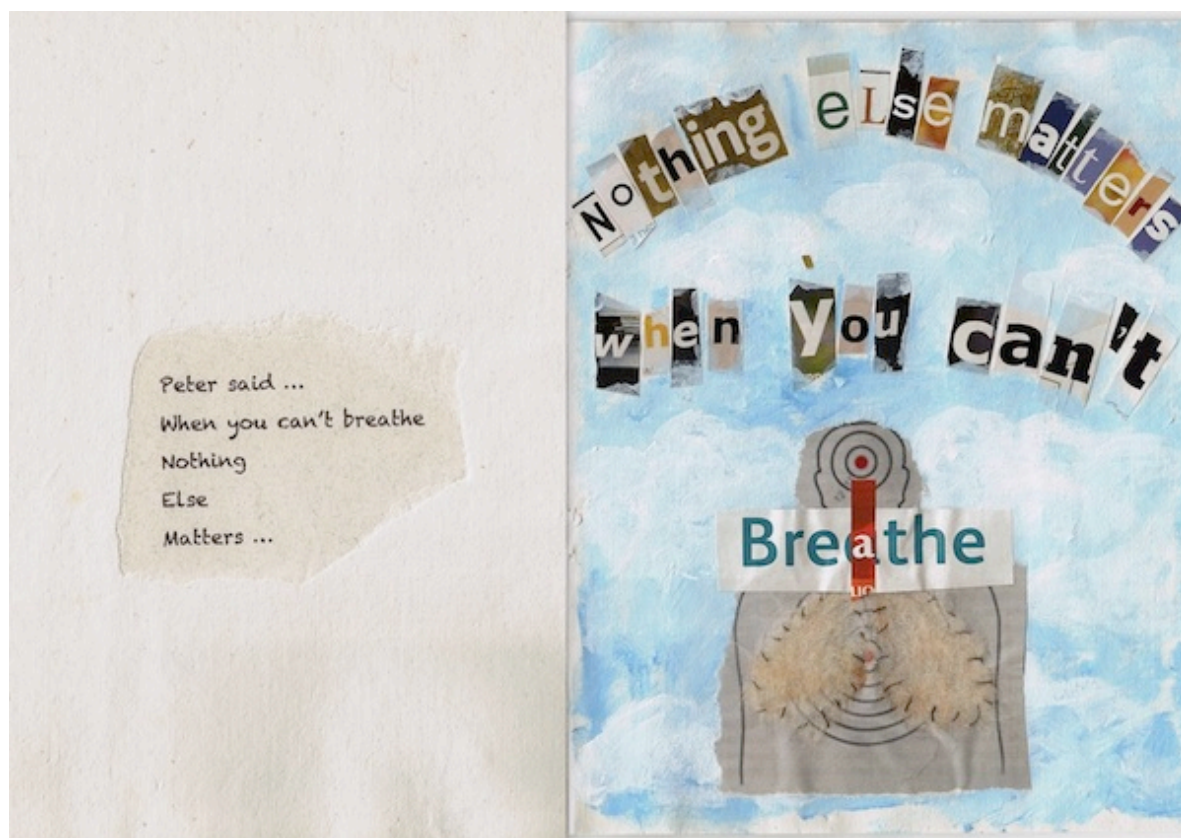 Peter said ...
When you can't breathe
Nothing
Else
Matters ...
Nothing eLse matters
when you can't
Breathe